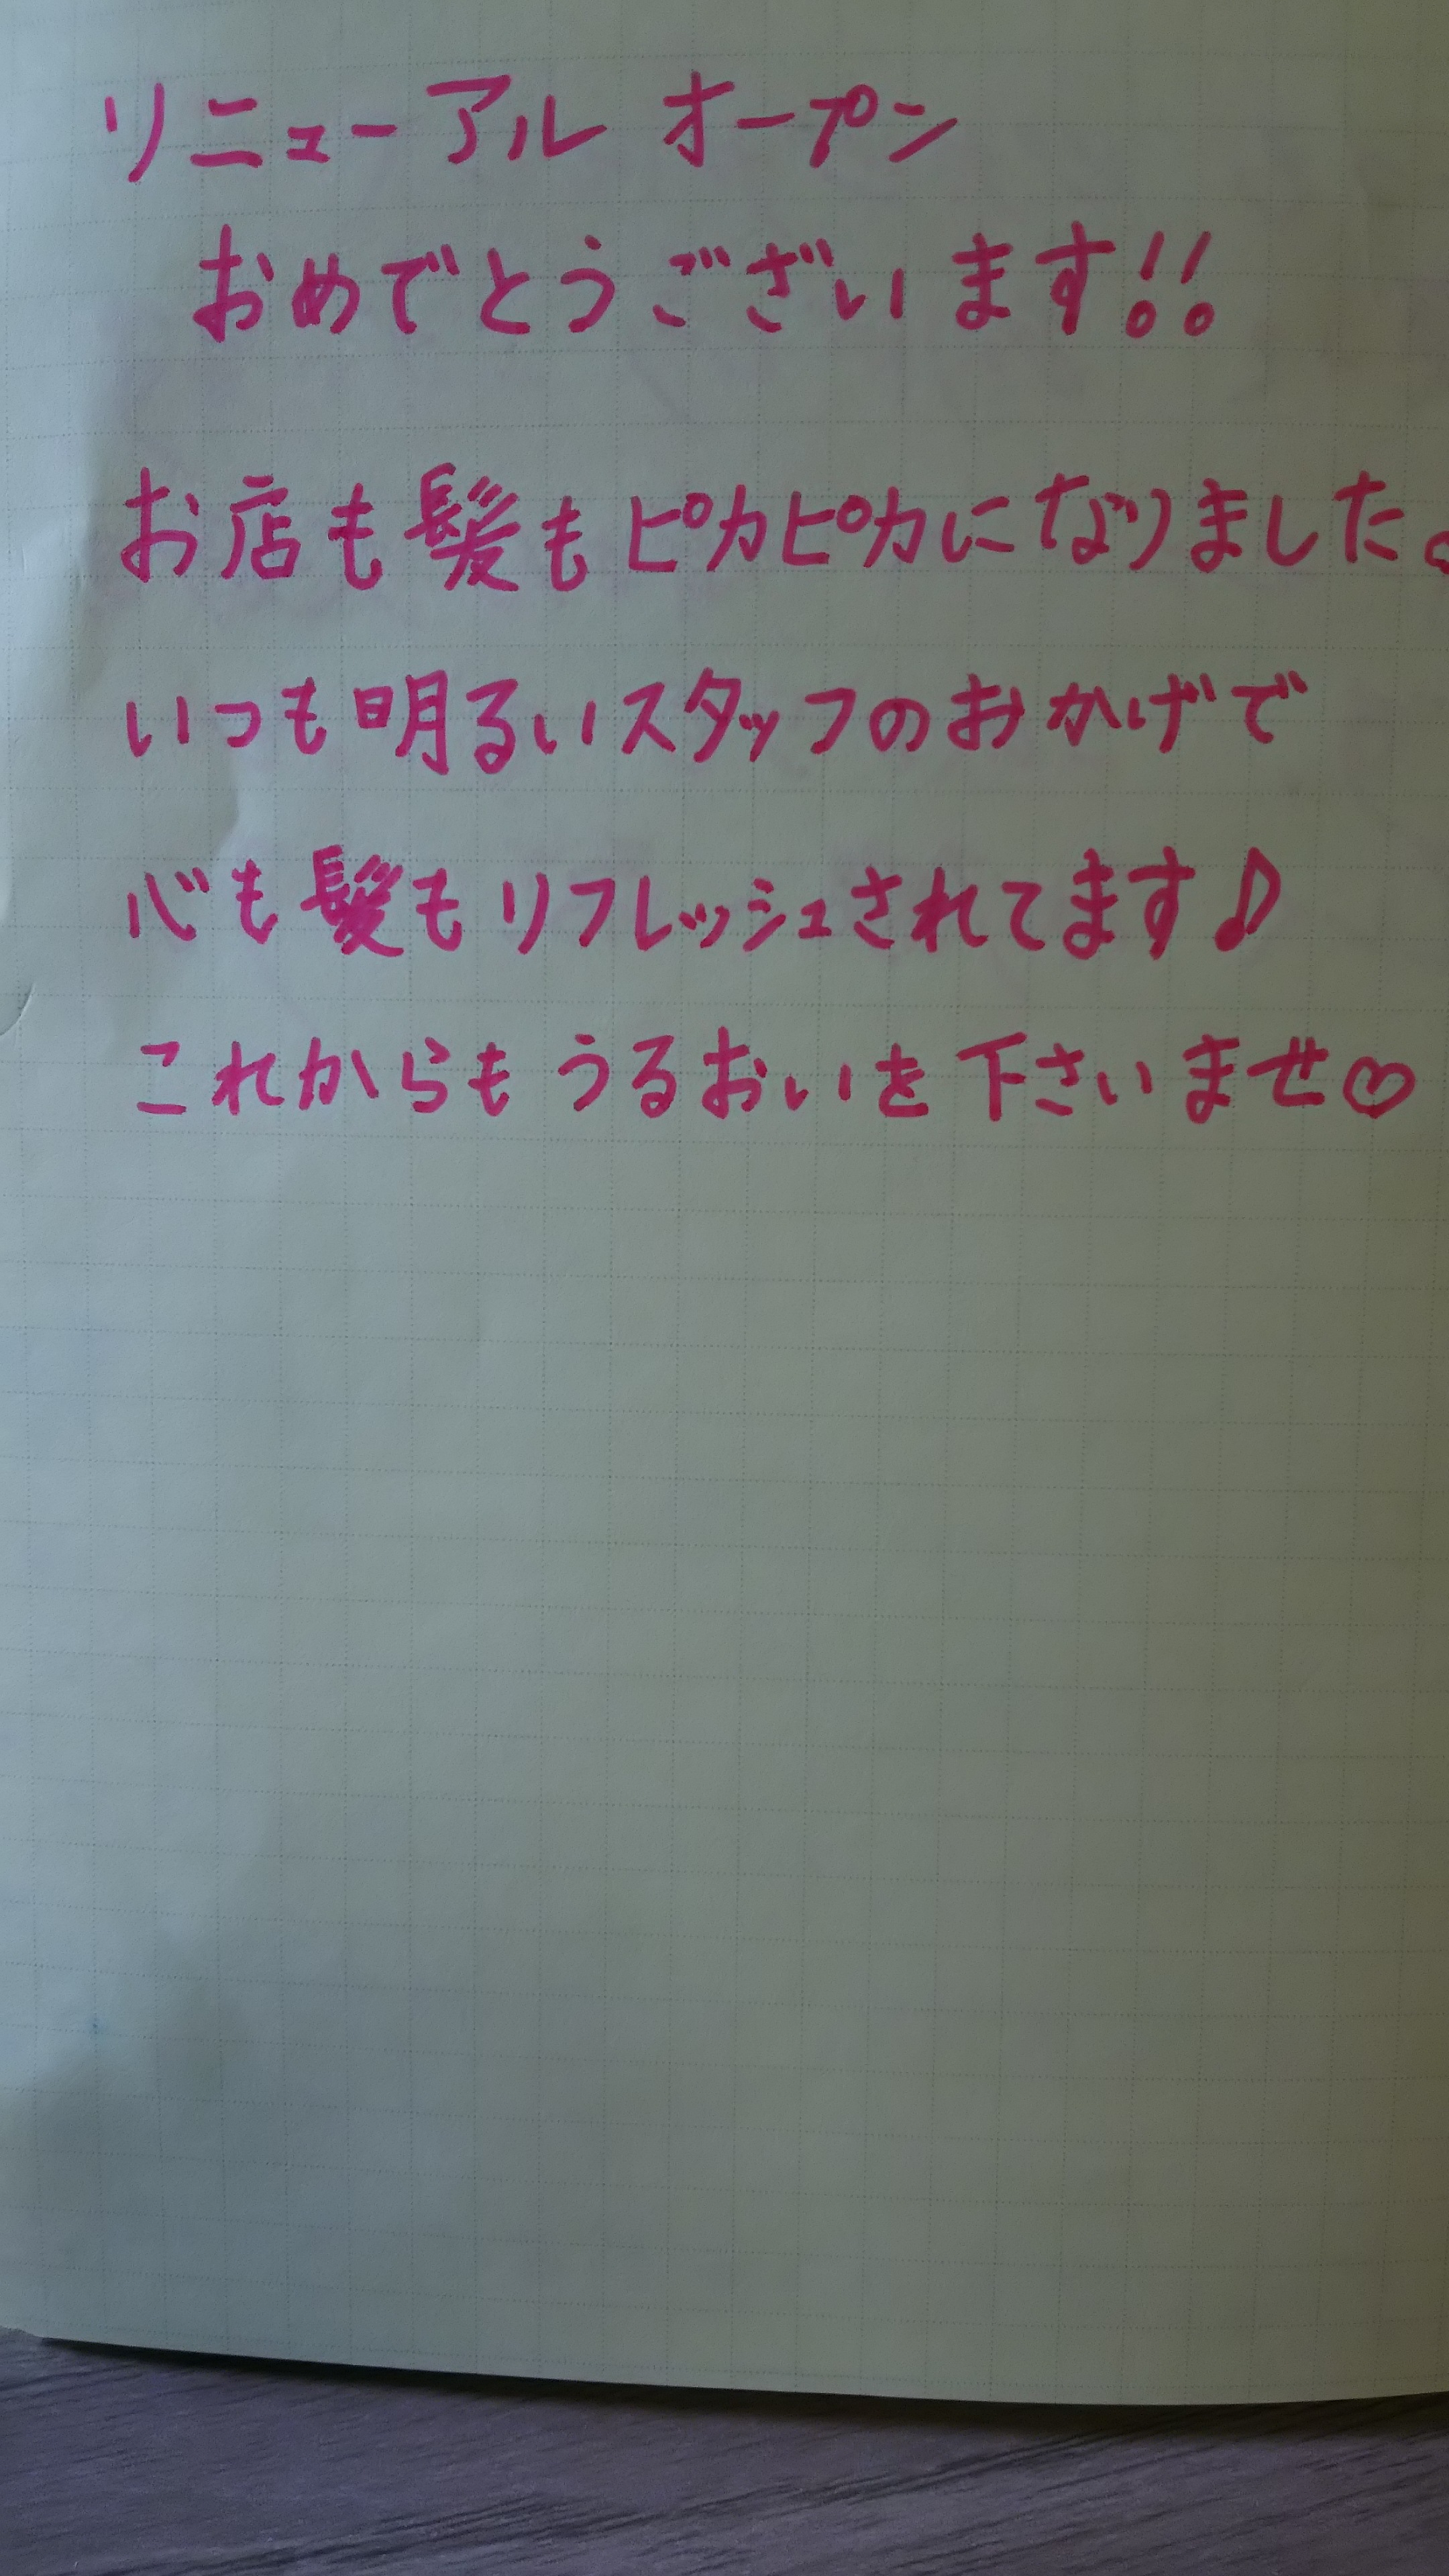 リニューアル オープン
おめでとうございます!!
お店も髪もピカピカになりました
いつも明るいスタッフのおかげで
心も髪もリフレッシュされてます♪
これからもうるおいを下さいませ♡